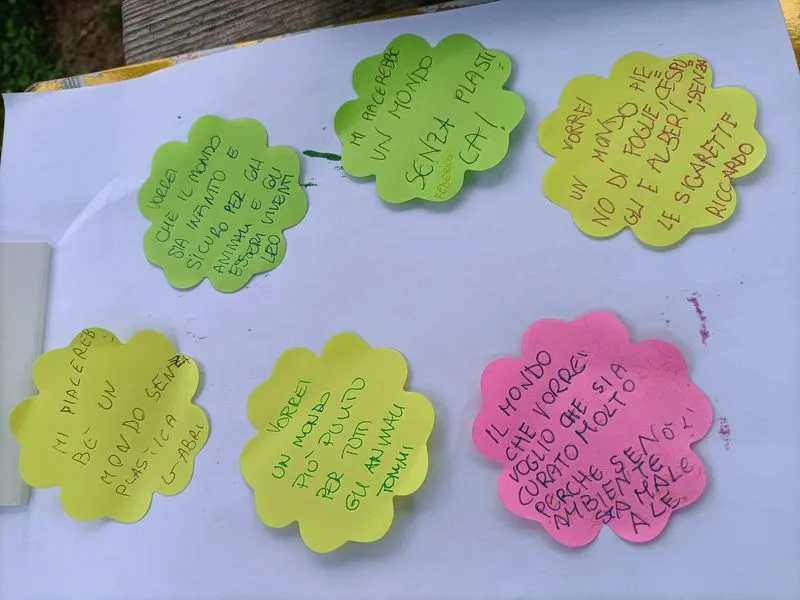 VORREI
CHE IL MONDO
SIA INFINITO E
SICURO PER GLI
ANIMALI E GLI
ESSERI VIVENTI
LEO
MI PIACEREBBE
UN MONDO
SENZA PLASTI
CA!
FEDERICO
VORREI
UN MONDO PIE
NO DI FOGLIE, CESPU
GLI E ALBERI, SENZA
LE SIGARETTE
RICCARDO
MI PIACEREB
BE UN
MONDO SENZA
PLASTICA
GABRI
VORREI
UN MONDO
PIÙ PULITO
PER TUTTI
GLI ANIMALI
TOMMI
IL MONDO
CHE VORREI
VOGLIO CHE SIA
CURATO MOLTO
PERCHE SENÒ
AMBIENTE
STA MALE
ALE